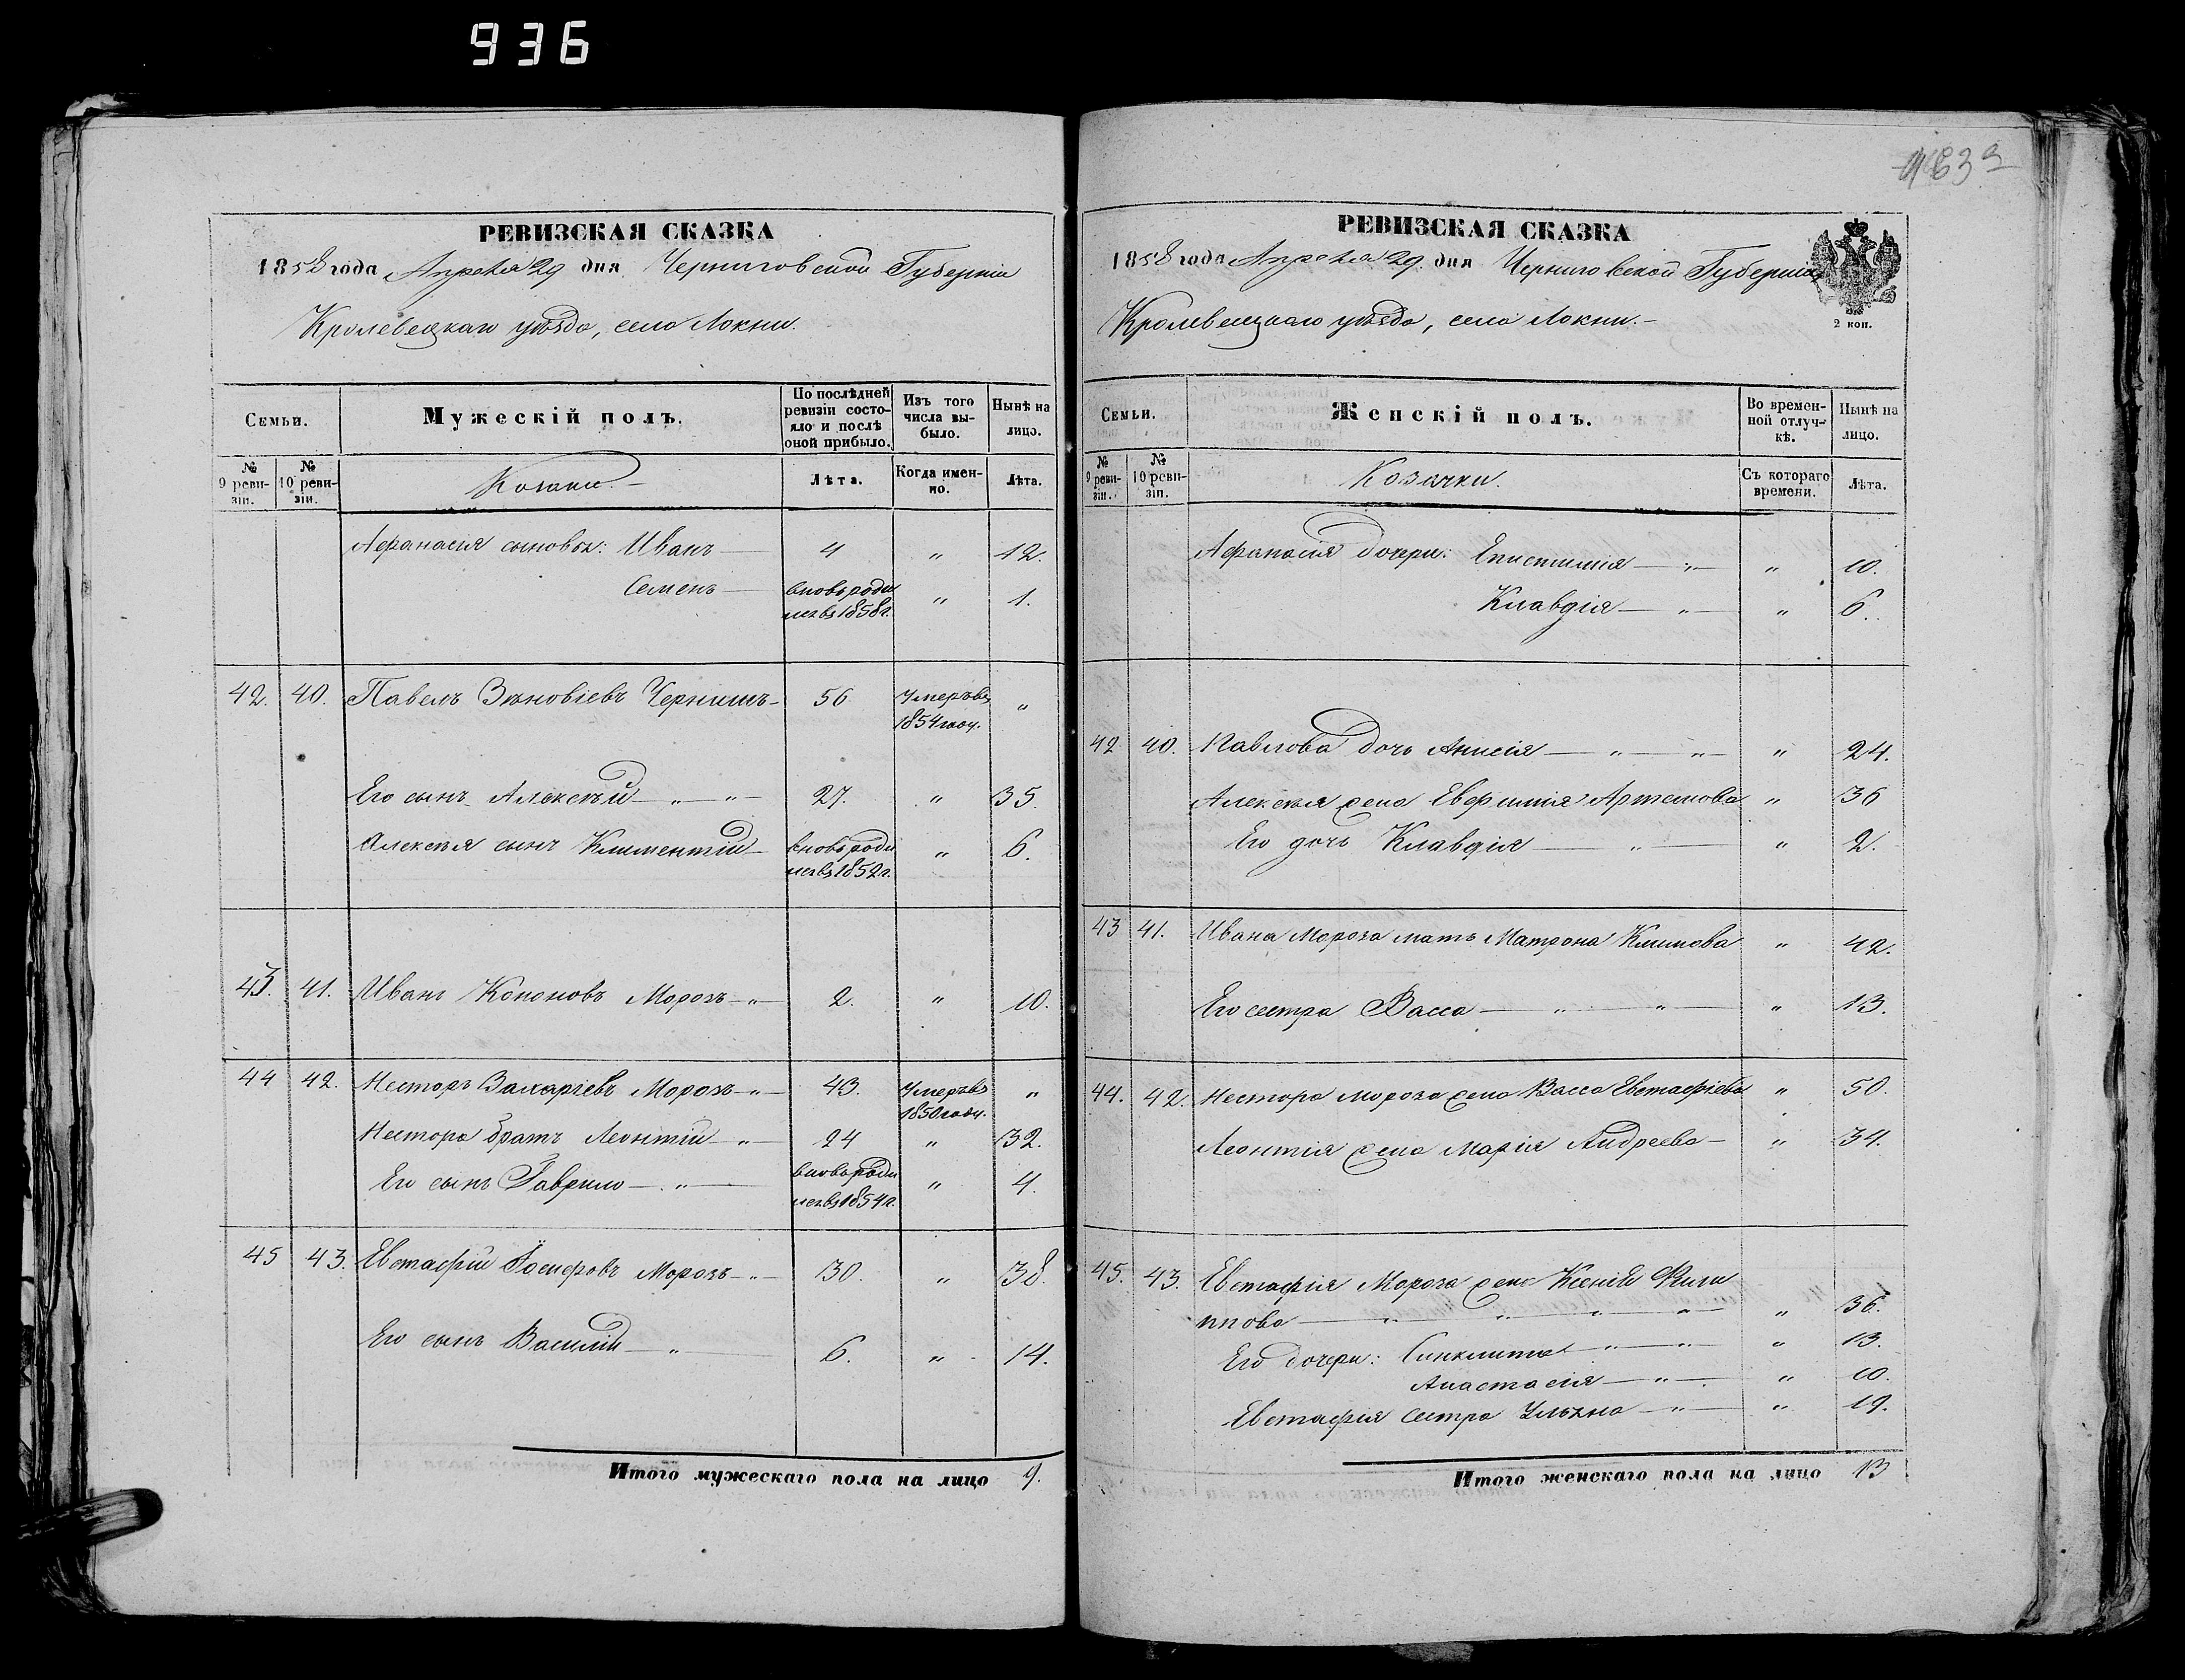 936
РЕВИЗСКАЯ СКАЗКА
1858 года Апреля 29 дня Черниговской Губернiи
Кролевецкаго уѣзда, села Локни.
Семьи. Мужескiй полъ. По послѣдней ревизiи состояло и послѣ оной прибыло. Изъ того числа выбыло. Нынѣ на лицо.
№ 9 ревизiи. № 10 ревизiи. Козаки. Лѣта. Когда именно. Лѣта.
Афанасiя сыновья: Иванъ 4 " 12.
Семенъ вновь роди
лся въ 1858 г. " 1.
42. 40. Павелъ Зѣновiевъ Чернишъ 56 умеръ въ "
1854 году.
Его сынъ Алексѣй " " 27. " 35.
Алексѣя сынъ Климентiй вновь роди " 6.
лся въ 1852 г.
43. 41. Иванъ Кононовъ Морозъ " 2. " 10.
44 42. Несторъ Захарiевъ Морозъ " 43. умеръ въ "
1850 году.
Нестора братъ Леонтiй " 24 " 32.
Его сынъ Гаврило " вновь роди " 4.
лся въ 1854 г.
45 43. Евстафiй Iосифовъ Морозъ " 30. " 38.
Его сынъ Василiй " 6. " 14.
Итого мужескаго пола на лицо 9.
1632
РЕВИЗСКАЯ СКАЗКА
1858 года Апреля 29 дня Черниговской Губернiи
2 коп.
Кролевецкаго уѣзда, села Локни.
Семьи. Женскiй полъ. Во временной отлучкѣ. Нынѣ на лицо.
№ 9 ревизiи. № 10 ревизiи. Козачки. Съ котораго времени. Лѣта.
Афанасiя дочери: Епистимiя " " 10.
Клавдiя " " 6.
42 40. Павлова дочь Анисiя " " " 24.
Алексѣя жена Евфимiя Артемова " 36
Его дочь Клавдiя " " 2.
43 41. Ивана Мороза мать Матрона Климова " 42.
Его сестра Васса " " " 13.
44. 42. Нестора Мороза жена Васса Евстафiева " 50.
Леонтiя жена Марiя Андреева " 34.
45. 43. Евстафiя Мороза жена Ксенiя Фили
ппова " " " " 36.
Его дочери: Синклита " " " 13.
Анастасiя " " 10.
Евстафiя сестра Ульяна " " 19.
Итого женскаго пола на лицо 13